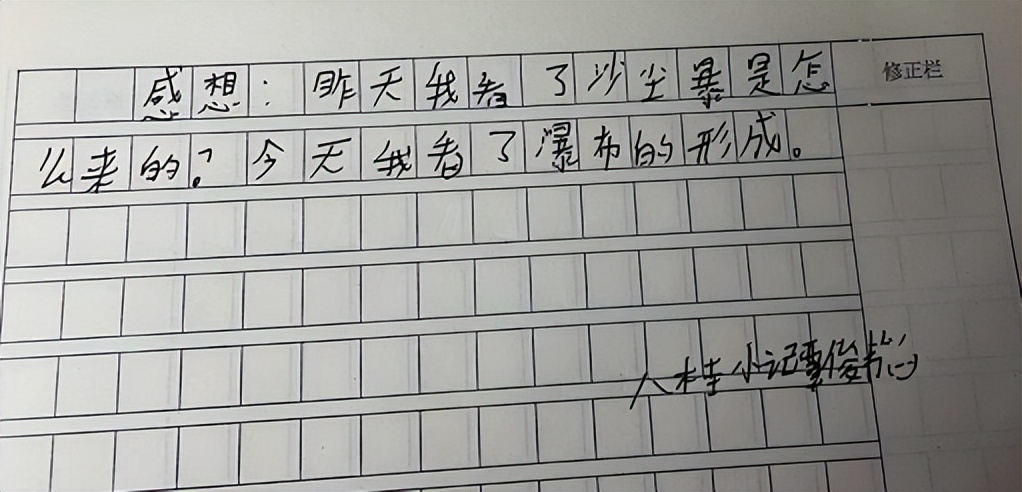 感想：昨天我看了沙尘暴是怎
修正栏
么来的？今天我看了瀑布的形成。
小记覃俊